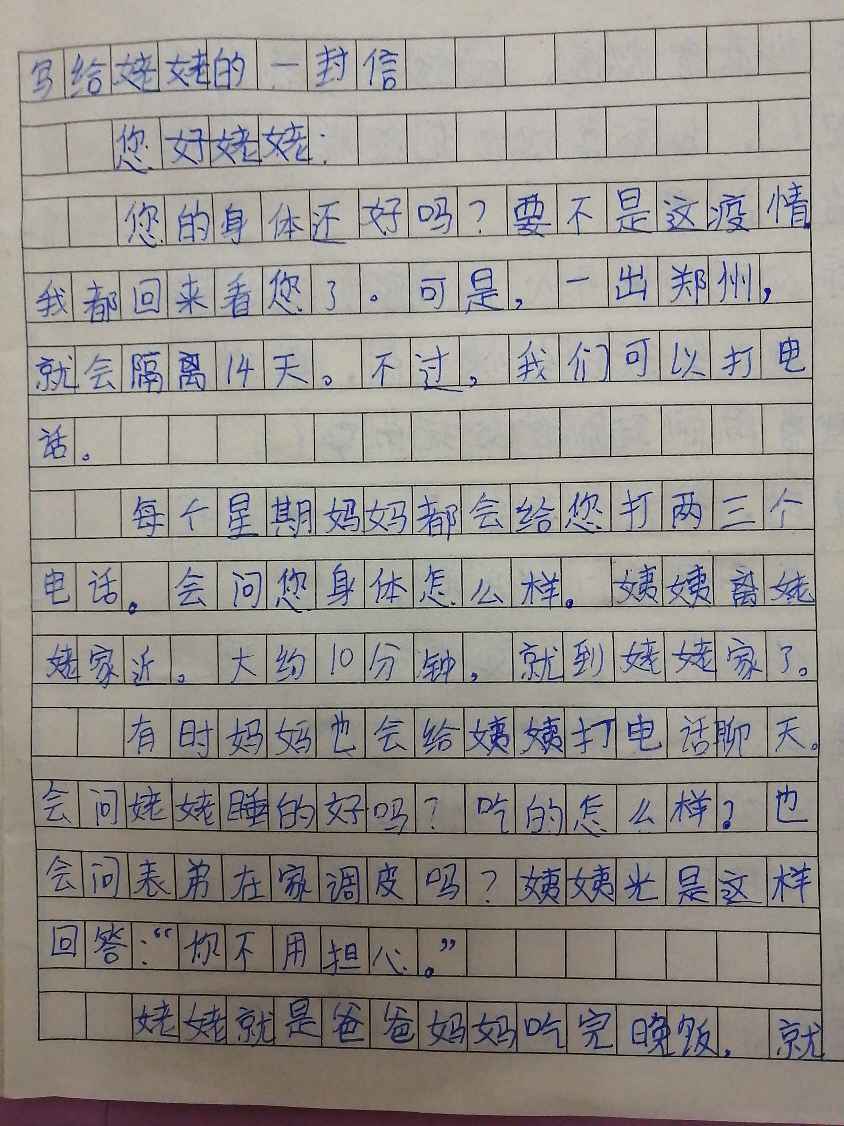 写给姥姥的一封信
您好姥姥：
您的身体还好吗？要不是这疫情
我都回来看您了。可是，一出郑州，
就会隔离14天。不过，我们可以打电
话。
每个星期妈妈都会给您打两三个
电话。会问您身体怎么样。姨姨离姥
姥家近。大约10分钟，就到姥姥家了。
有时妈妈也会给姨姨打电话聊天。
会问姥姥睡的好吗？吃的怎么样？也
会问表弟在家调皮吗？姨姨光是这样
回答：“你不用担心。”
姥姥就是爸爸妈妈吃完晚饭，就